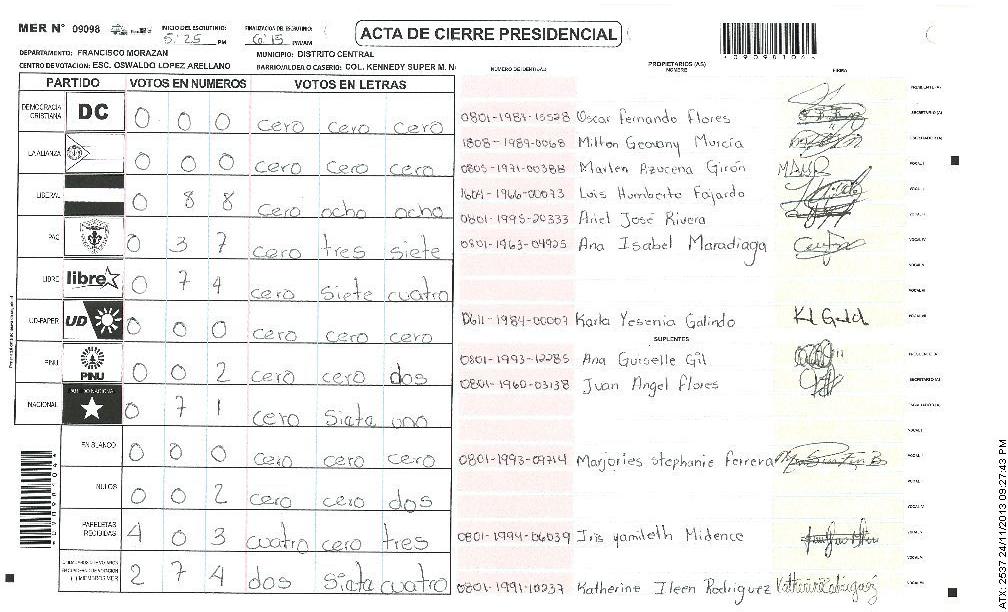 MER N° 09098 INICIO DEL ESCRUTINIO: 5:25 PM FINALIZACION DEL ESCRUTINIO: 6:15 PM/AM
ACTA DE CIERRE PRESIDENCIAL
DEPARTAMENTO: FRANCISCO MORAZAN MUNICIPIO: DISTRITO CENTRAL
CENTRO DE VOTACION: ESC. OSWALDO LOPEZ ARELLANO BARRIO/ALDEA O CASERIO: COL. KENNEDY SUPER M. N
PARTIDO VOTOS EN NUMEROS VOTOS EN LETRAS
DEMOCRACIA CRISTIANA DC 0 0 0 cero cero cero
LA ALIANZA 0 0 0 cero cero cero
LIBERAL 0 8 8 cero ocho ocho
PAC 0 3 7 cero tres siete
LIBRE libre 0 7 4 cero siete cuatro
UD-FAPER UD 0 0 0 cero cero cero
PINU PINU 0 0 2 cero cero dos
NACIONAL 0 7 1 cero siete uno
EN BLANCO 0 0 0 cero cero cero
NULOS 0 0 2 cero cero dos
PAPELETAS RECIBIDAS 4 0 3 cuatro cero tres
2 7 4 dos siete cuatro
PROPIETARIOS (AS)
NOMBRE FIRMA
Oscar Fernando Flores
1808-1989-0068 Milton Geovany Murcia
0805-1971-00388 Marlen Azucena Girón
1604-1966-00073 Luis Humberto Fajardo
0801-1995-20333 Ariel José Rivera
0801-1963-04925 Ana Isabel Maradiaga
0611-1984-00007 Karla Yesenia Galindo
SUPLENTES
0801-1993-12285 Ana Guiselle Gil
0801-1960-03138 Juan Angel Flores
0801-1993-09714 Marjories Stephanie Ferrera
0801-1994-06039 Iris yamileth Midence
0801-1991-10237 Katherine Ileen Rodriguez
2537 24/11/2013 09:27:43 PM